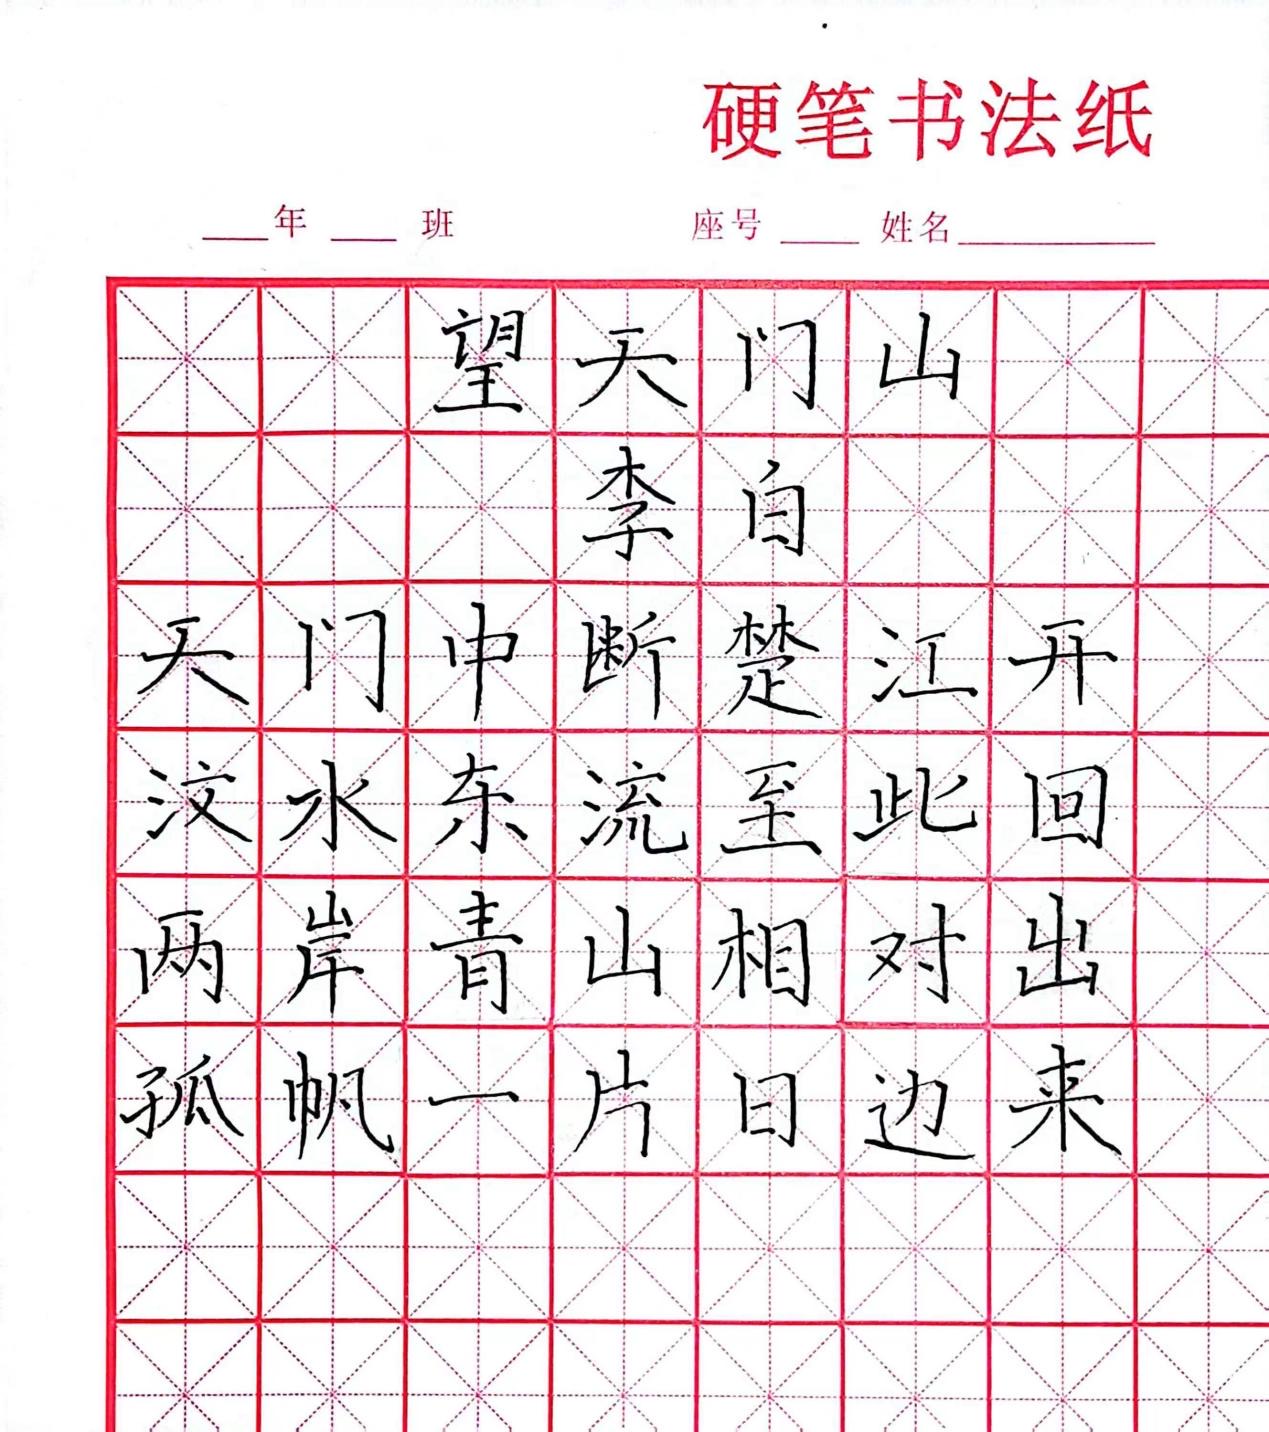 硬笔书法纸
___年 ___ 班 座号 ___ 姓名_________
望天门山
李白
天门中断楚江开
汶水东流至此回
两岸青山相对出
孤帆一片日边来